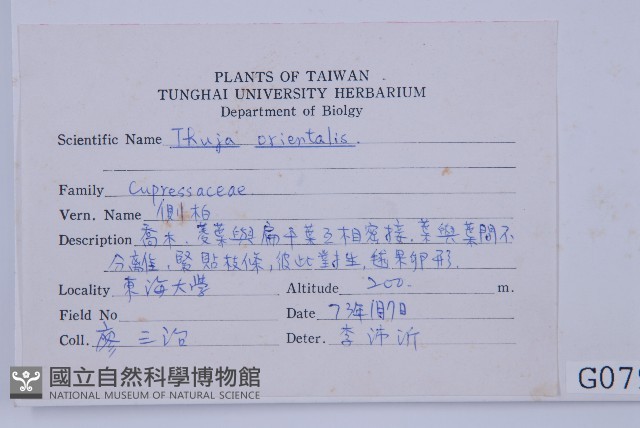 PLANTS OF TAIWAN
TUNGHAI UNIVERSITY HERBARIUM
Department of Biolgy
Scientific Name Thuja orientalis.
Family Cupressaceae
Vern. Name 側柏
Description 喬木. 菱葉與扁平葉互相密接. 葉與葉間不
分離生, 緊貼枝條, 彼此對生, 毬果卵形.
Locality 東海大學 Altitude 200 m.
Field No Date 73年1月7日
Coll. 廖三沿 Deter. 李沛沂
G079
國立自然科學博物館
NATIONAL MUSEUM OF NATURAL SCIENCE